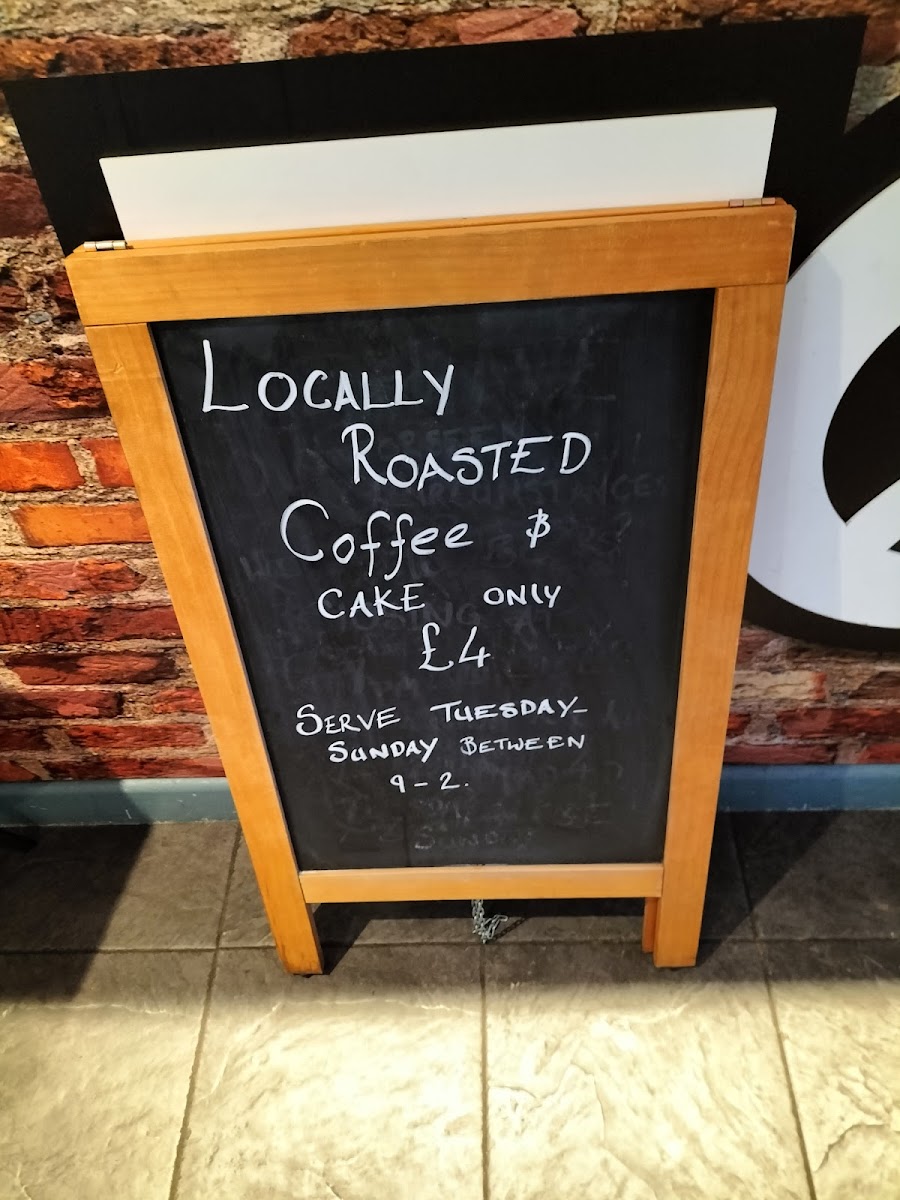 LOCALLY
ROASTED
Coffee &
CAKE ONLY
£4
SERVE TUESDAY-
SUNDAY BETWEEN
9-2.
CIRCUMSTANCES